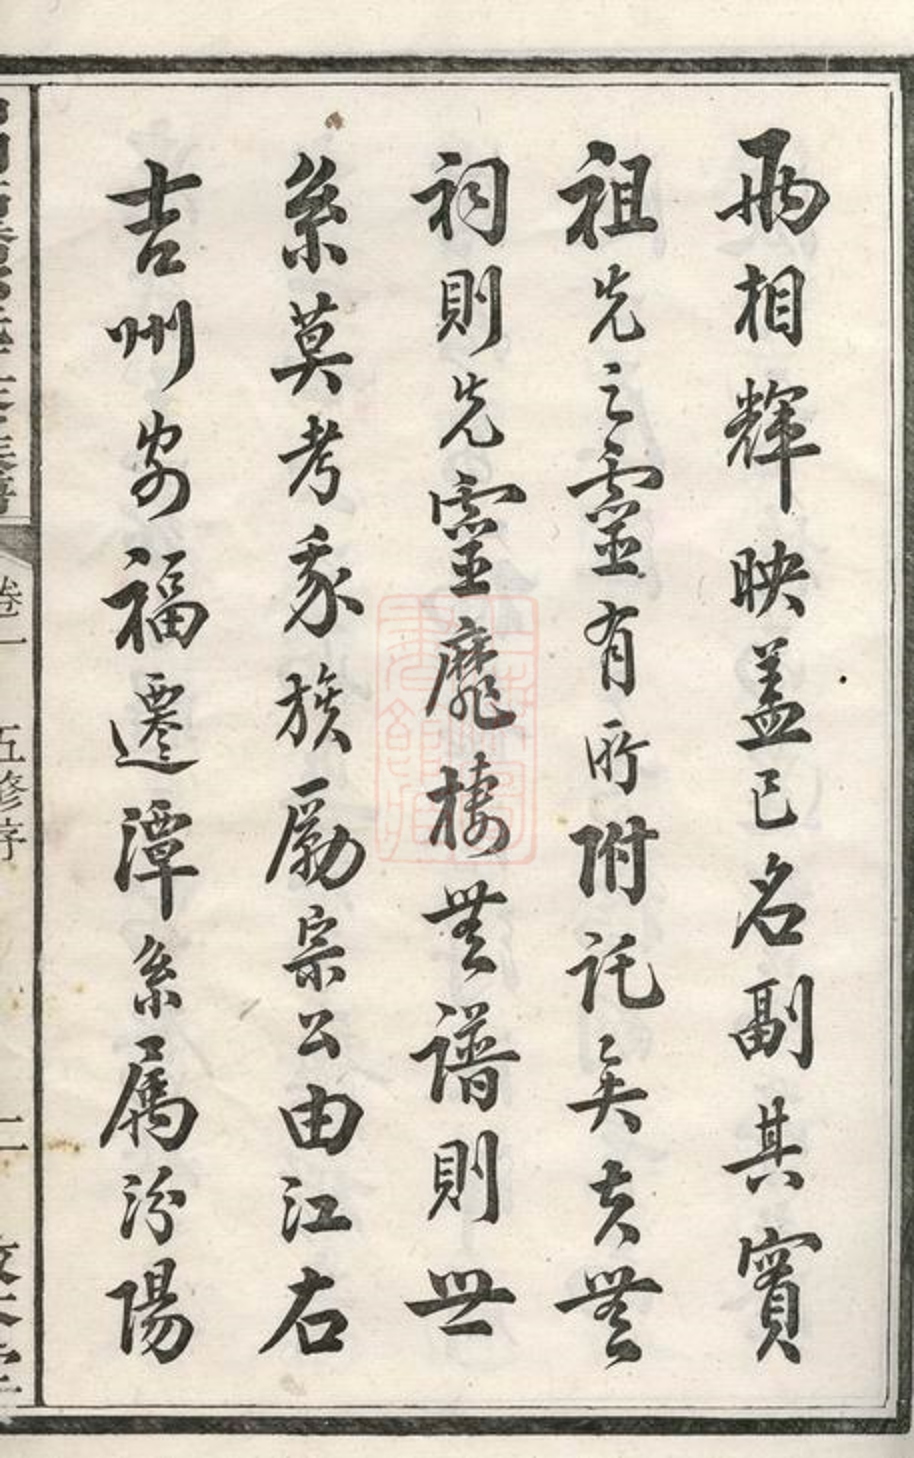 兩相輝映蓋已名副其實
祖先之靈有所附託矣夫無
祠則先靈靡棲無譜則世
系莫考我族勵宗公由江右
吉州安福遷潭系屬汾陽
卷一
五修序
二